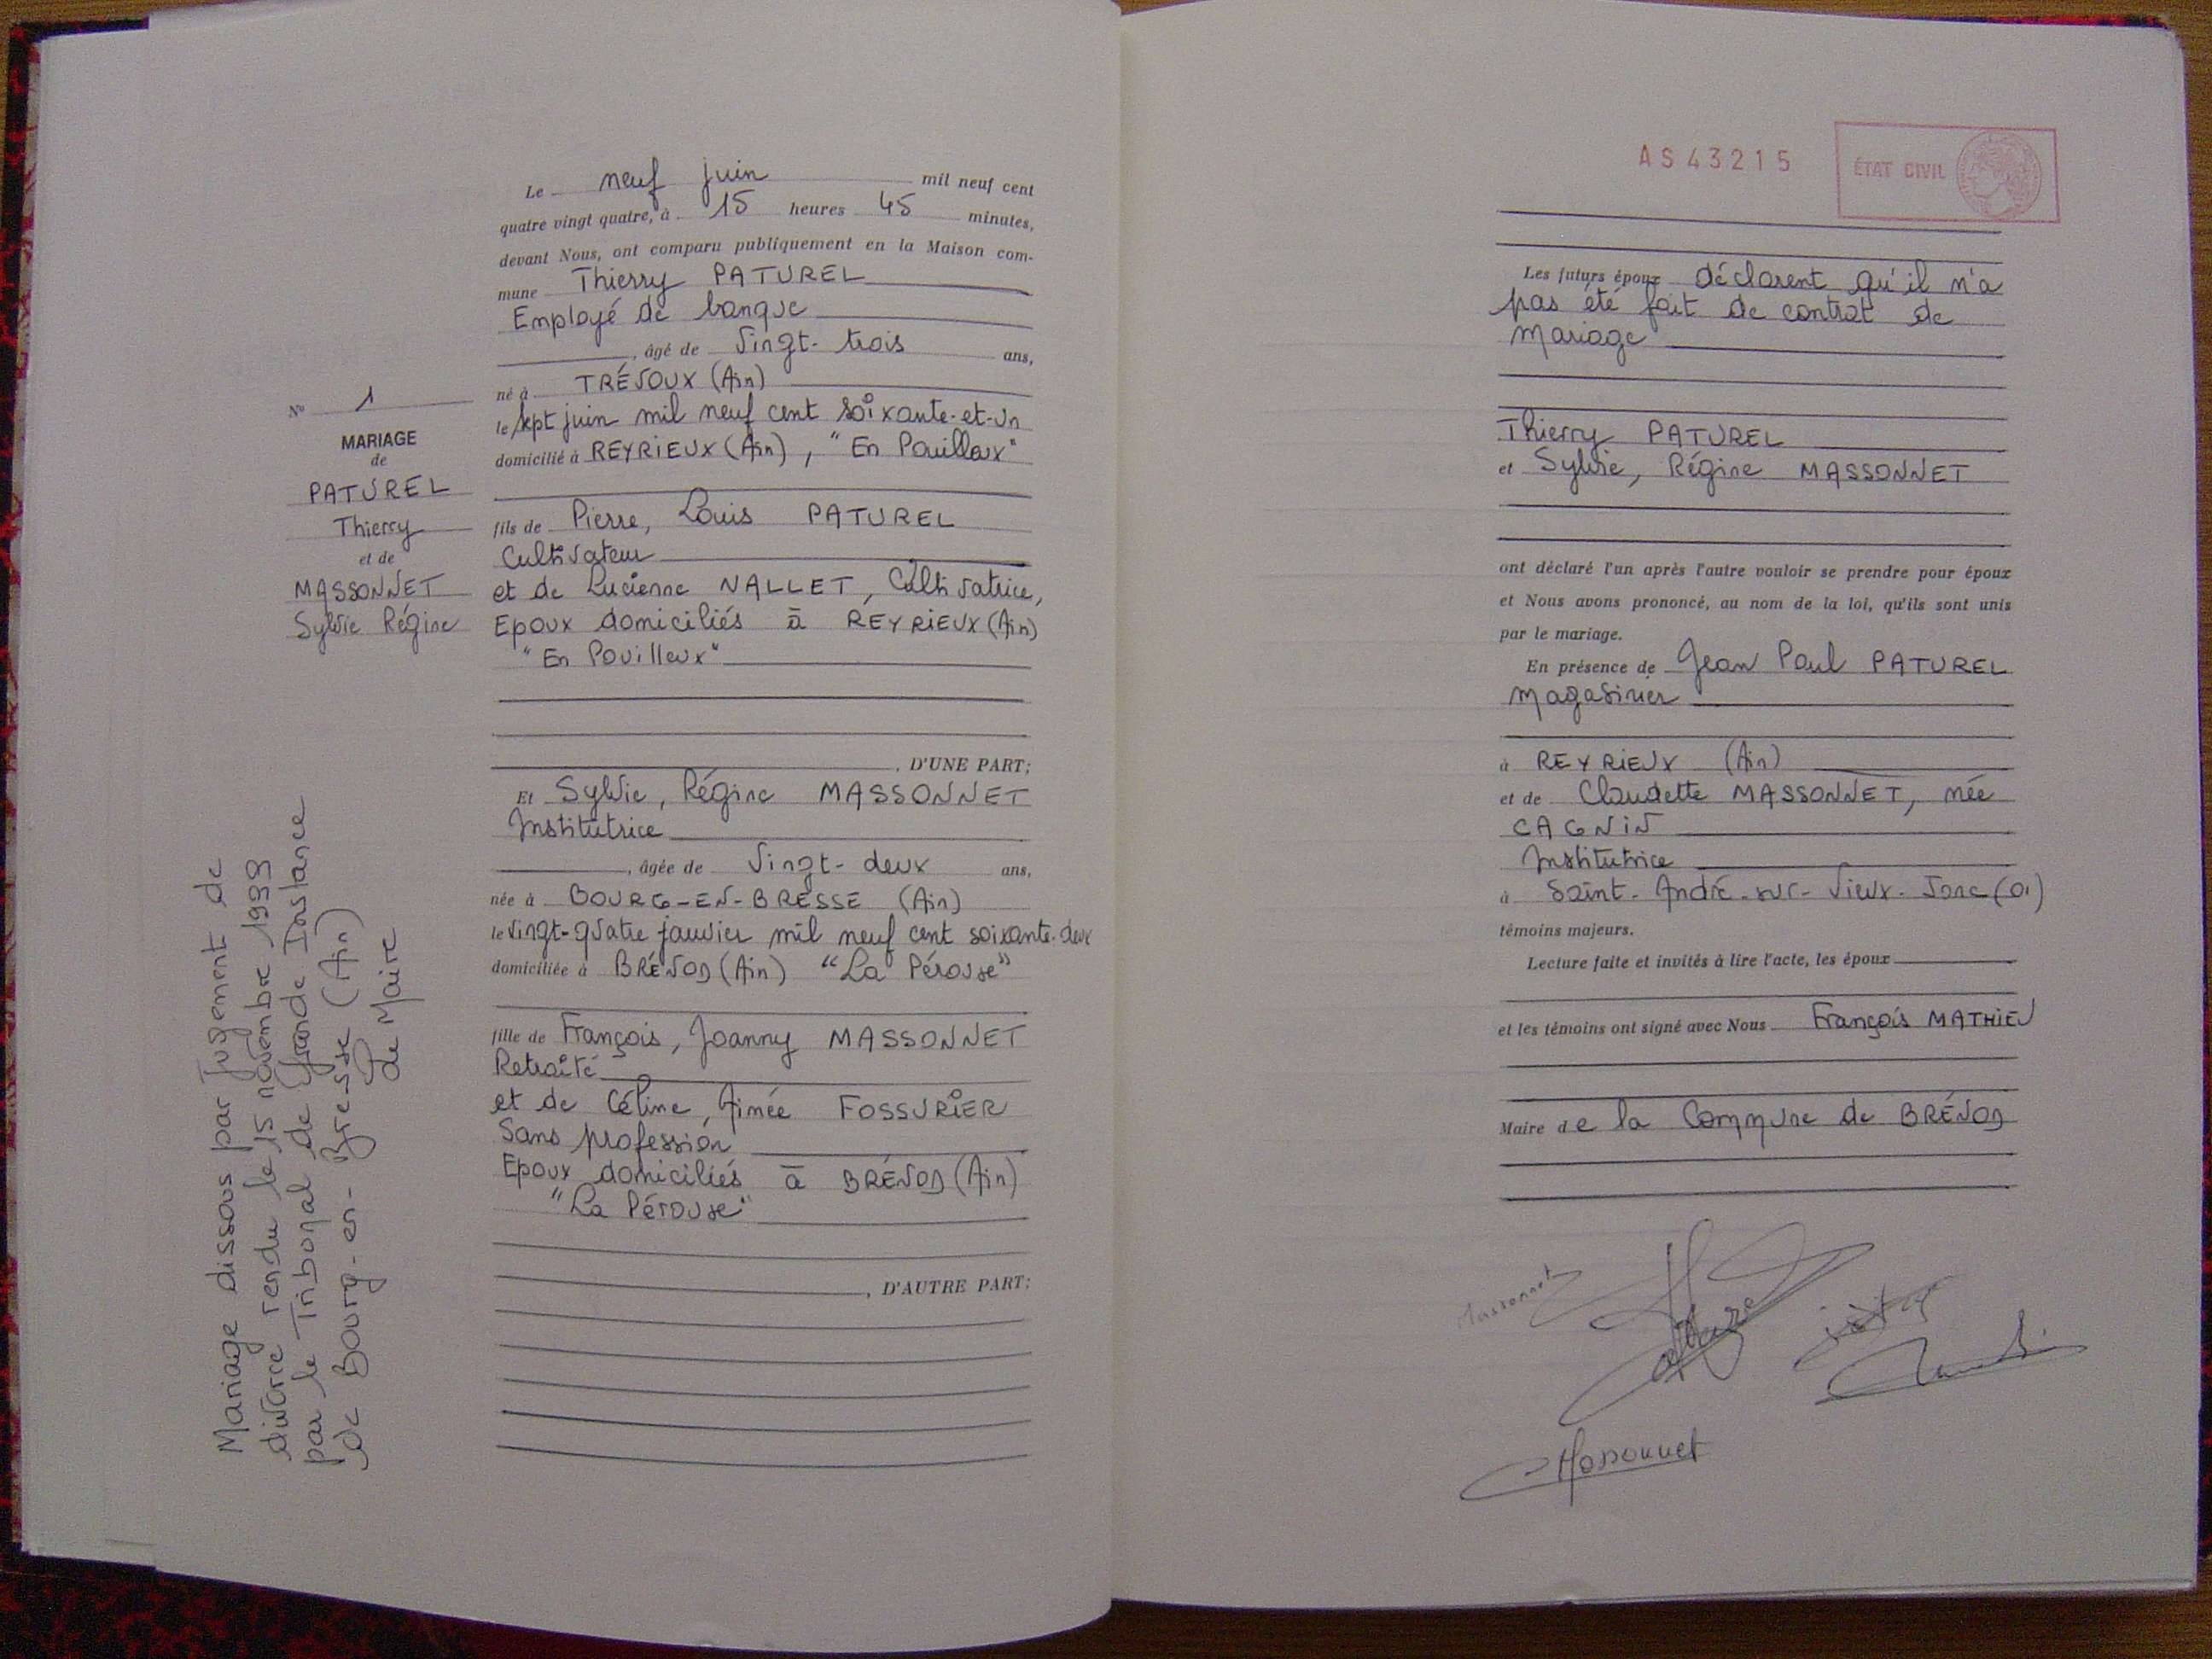 Le neuf juin mil neuf cent
quatre vingt quatre, à 15 heures 45 minutes,
devant Nous, ont comparu publiquement en la Maison com-
mune Thierry PATUREL
Employé de banque
, âgé de Vingt-trois ans,
né à TRÉVOUX (Ain)
le sept juin mil neuf cent soixante-et-un
domicilié à REYRIEUX (Ain), "En Pouilleux"
fils de Pierre, Louis PATUREL
Cultivateur
et de Lucienne NALLET, Cultivatrice,
Epoux domiciliés à REYRIEUX (Ain)
"En Pouilleux"
, D'UNE PART;
Et Sylvie, Régine MASSONNET
Institutrice
, âgée de Vingt-deux ans,
née à BOURG-EN-BRESSE (Ain)
le vingt-quatre janvier mil neuf cent soixante-deux
domiciliée à BRÉNOD (Ain) "La Pérouse"
fille de François, Joanny MASSONNET
Retraité
et de Céline, Aimée FOSSURIER
Sans profession
Epoux domiciliés à BRÉNOD (Ain)
"La Pérouse"
, D'AUTRE PART;
N° 1
MARIAGE
de
PATUREL
Thierry
et de
MASSONNET
Sylvie Régine
Mariage dissous par Jugement de
divorce rendu le 15 novembre 1999
par le Tribunal de Grande Instance
de Bourg-en-Bresse (Ain)
Le Maire
AS43215
ÉTAT CIVIL
Les futurs époux déclarent qu'il n'a
pas été fait de contrat de
mariage
Thierry PATUREL
et Sylvie, Régine MASSONNET
ont déclaré l'un après l'autre vouloir se prendre pour époux
et Nous avons prononcé, au nom de la loi, qu'ils sont unis
par le mariage.
En présence de Jean Paul PATUREL
Magasinier
à REYRIEUX (Ain)
et de Claudette MASSONNET, née
CAGNIN
Institutrice
à Saint-André-sur-Vieux-Jonc (01)
témoins majeurs.
Lecture faite et invités à lire l'acte, les époux
et les témoins ont signé avec Nous François MATHIEU
Maire de la Commune de BRÉNOD
Massonnet
Massonnet